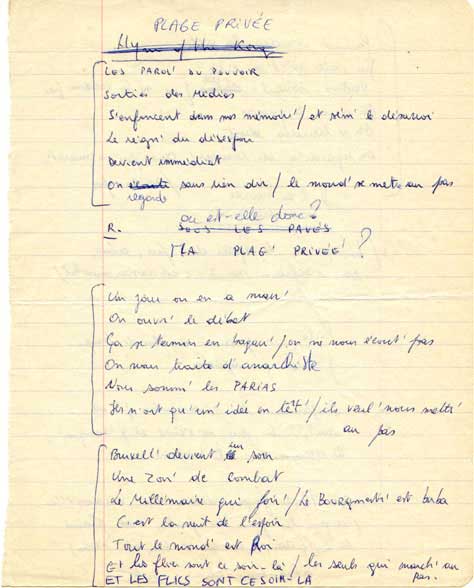 PLAGE PRIVÉE
Hymn of the Kong
LES PAROL' DU POUVOIR
Sorties des Médias
S'enfoncent dans nos mémoir' / et sèm' le désarroi
Le règn' du désespoir
Devient immédiat
On écoute sans rien dir' / le mond' se mettre au pas
regarde
où est-elle donc ?
R. SOUS LES PAVÉS
MA PLAG' PRIVÉE ?
Un jour on en a marr'
On ouvr' le débat
Ça se termin en bagarr' / on ne nous écout' pas
On nous traite d'anarchiste
Nous somm' les PARIAS
Ils n'ont qu'un' idée en têt' / ils veul' nous mettr'
au pas
Bruxell' devient un soir
Une Zon' de combat
Le Millénaire qui foir' / Le Bourgmestr' est baba
C'est la nuit de l'espoir
Tout le mond' est Roi
Et les flics sont ce soir-là / les seuls qui march' au
pas.
ET LES FLICS SONT CE SOIR-LA